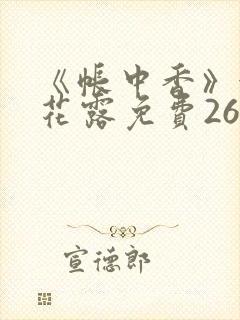 《帳中香》
花露免費26
宣德郎